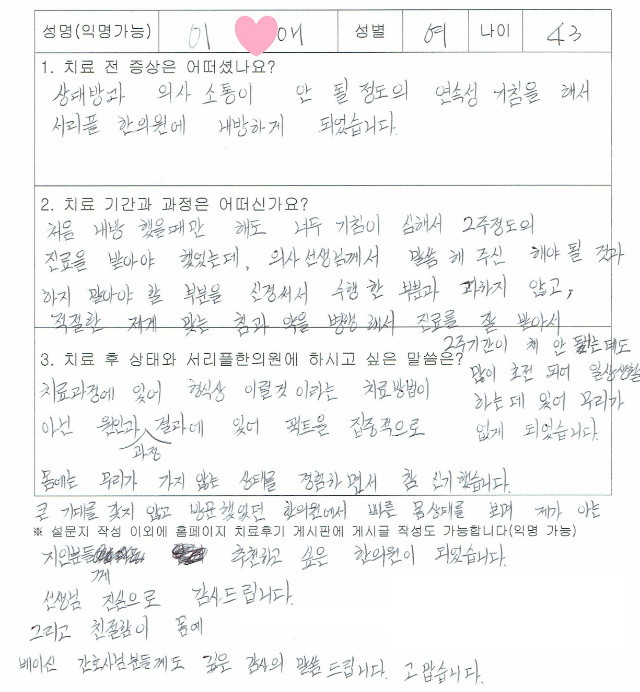 성명(익명가능) 이 애 성별 여 나이 43
1. 치료 전 증상은 어떠셨나요?
상대방과 의사 소통이 안 될 정도의 연속성 기침을 해서
서리풀 한의원에 내방하게 되었습니다.
2. 치료 기간과 과정은 어떠신가요?
처음 내방 했을때만 해도 너무 기침이 심해서 2주정도의
진료를 받아야 했었는데, 의사선생님께서 말씀 해 주신 해야 될 것과
하지 말아야 할 부분을 신경써서 수행 한 부분과 과하지 않고,
적절한 저게 맞는 침과 약을 병행 해서 진료를 잘 받아서
2주기간이 채 안 됬는데도
많이 호전 되어 일상생활
하는데 있어 무리가
없게 되었습니다.
3. 치료 후 상태와 서리풀한의원에 하시고 싶은 말씀은?
치료과정에 있어 형식상 이럴것 이라는 치료방법이
아닌 원인과 과정 결과에 있어 팩트를 집중적으로
몸에는 무리가 가지 않는 상태를 경험하면서 참 신기했습니다.
큰 기대를 갖지 않고 방문했었던 한의원에서 빠른 몸상태를 보며 제가 아는
※ 설문지 작성 이외에 홈페이지 치료후기 게시판에 게시글 작성도 가능합니다(익명 가능)
지인분들께 추천하고 싶은 한의원이 되었습니다.
선생님 진심으로 감사드립니다.
그리고 친절함이 몸에
베이신 간호사님분들께도 깊은 감사의 말씀 드립니다. 고맙습니다.